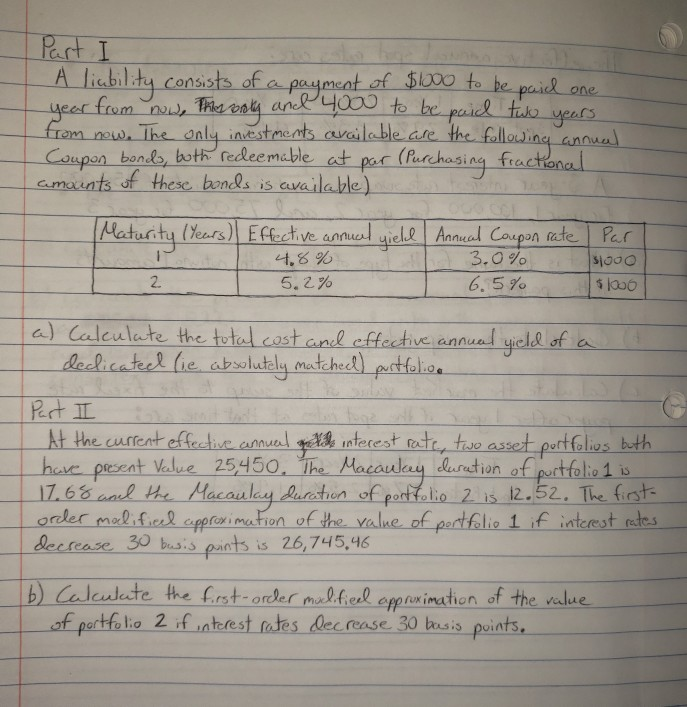 Part I
A liability consists of a payment of $1000 to be paid one
year from now, and 4,000 to be paid two years
from now. The only investments available are the following annual
Coupon bonds, both redeemable at par (Purchasing fractional
amounts of these bonds is available)
Maturity (Years) Effective annual yield Annual Coupon rate Par
1 4.8% 3.0% $1000
2 5.2% 6.5% $1000
a) Calculate the total cost and effective annual yield of a
dedicated (ie, absolutely matched) portfolio.
Part II
At the current effective annual interest rate, two asset portfolios both
have present Value 25,450. The Macaulay duration of portfolio 1 is
17.68 and the Macaulay duration of portfolio 2 is 12.52. The first-
order modified approximation of the value of portfolio 1 if interest rates
decrease 30 basis points is 26,745.46
b) Calculate the first-order modified approximation of the value
of portfolio 2 if interest rates decrease 30 basis points.